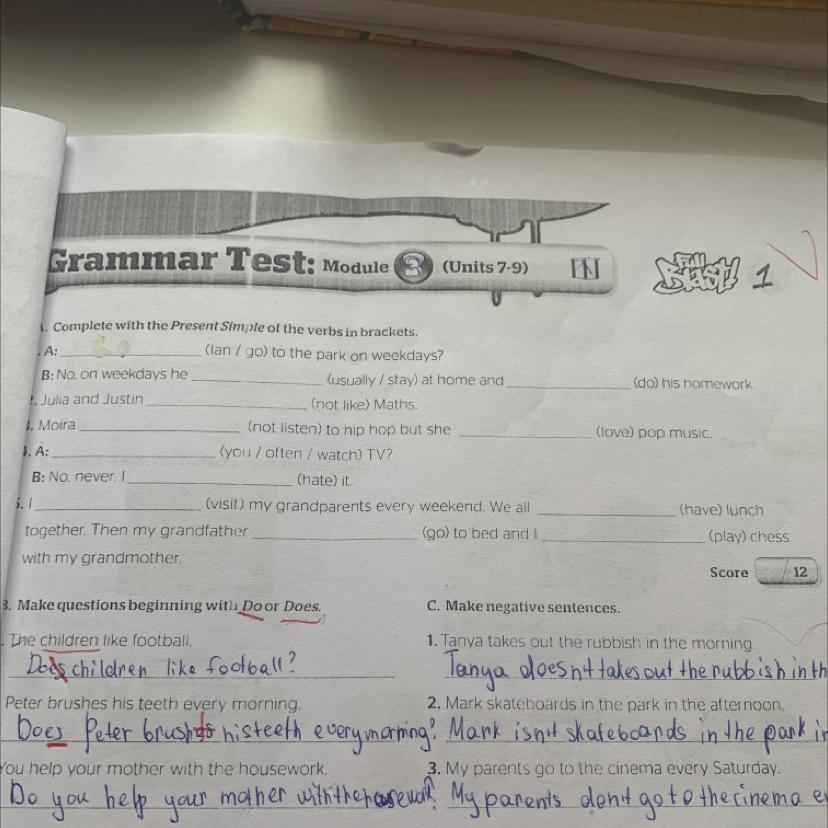 Grammar Test: Module 3 (Units 7-9)
Full Blast! 1
. Complete with the Present Simple of the verbs in brackets.
. A: ____________ (Ian / go) to the park on weekdays?
B: No, on weekdays he ____________ (usually / stay) at home and ____________ (do) his homework.
. Julia and Justin ____________ (not like) Maths.
. Moira ____________ (not listen) to hip hop but she ____________ (love) pop music.
. A: ____________ (you / often / watch) TV?
B: No, never. I ____________ (hate) it.
5. I ____________ (visit) my grandparents every weekend. We all ____________ (have) lunch
together. Then my grandfather ____________ (go) to bed and I ____________ (play) chess
with my grandmother.
Score 12
B. Make questions beginning with Do or Does.
. The children like football.
Does children like football?
Peter brushes his teeth every morning.
Does Peter brushes his teeth every morning?
You help your mother with the housework.
Do you help your mother with the housework?
C. Make negative sentences.
1. Tanya takes out the rubbish in the morning.
Tanya doesn't takes out the rubbish in th
2. Mark skateboards in the park in the afternoon.
Mark isn't skateboards in the park in
3. My parents go to the cinema every Saturday.
My parents don't go to the cinema ev